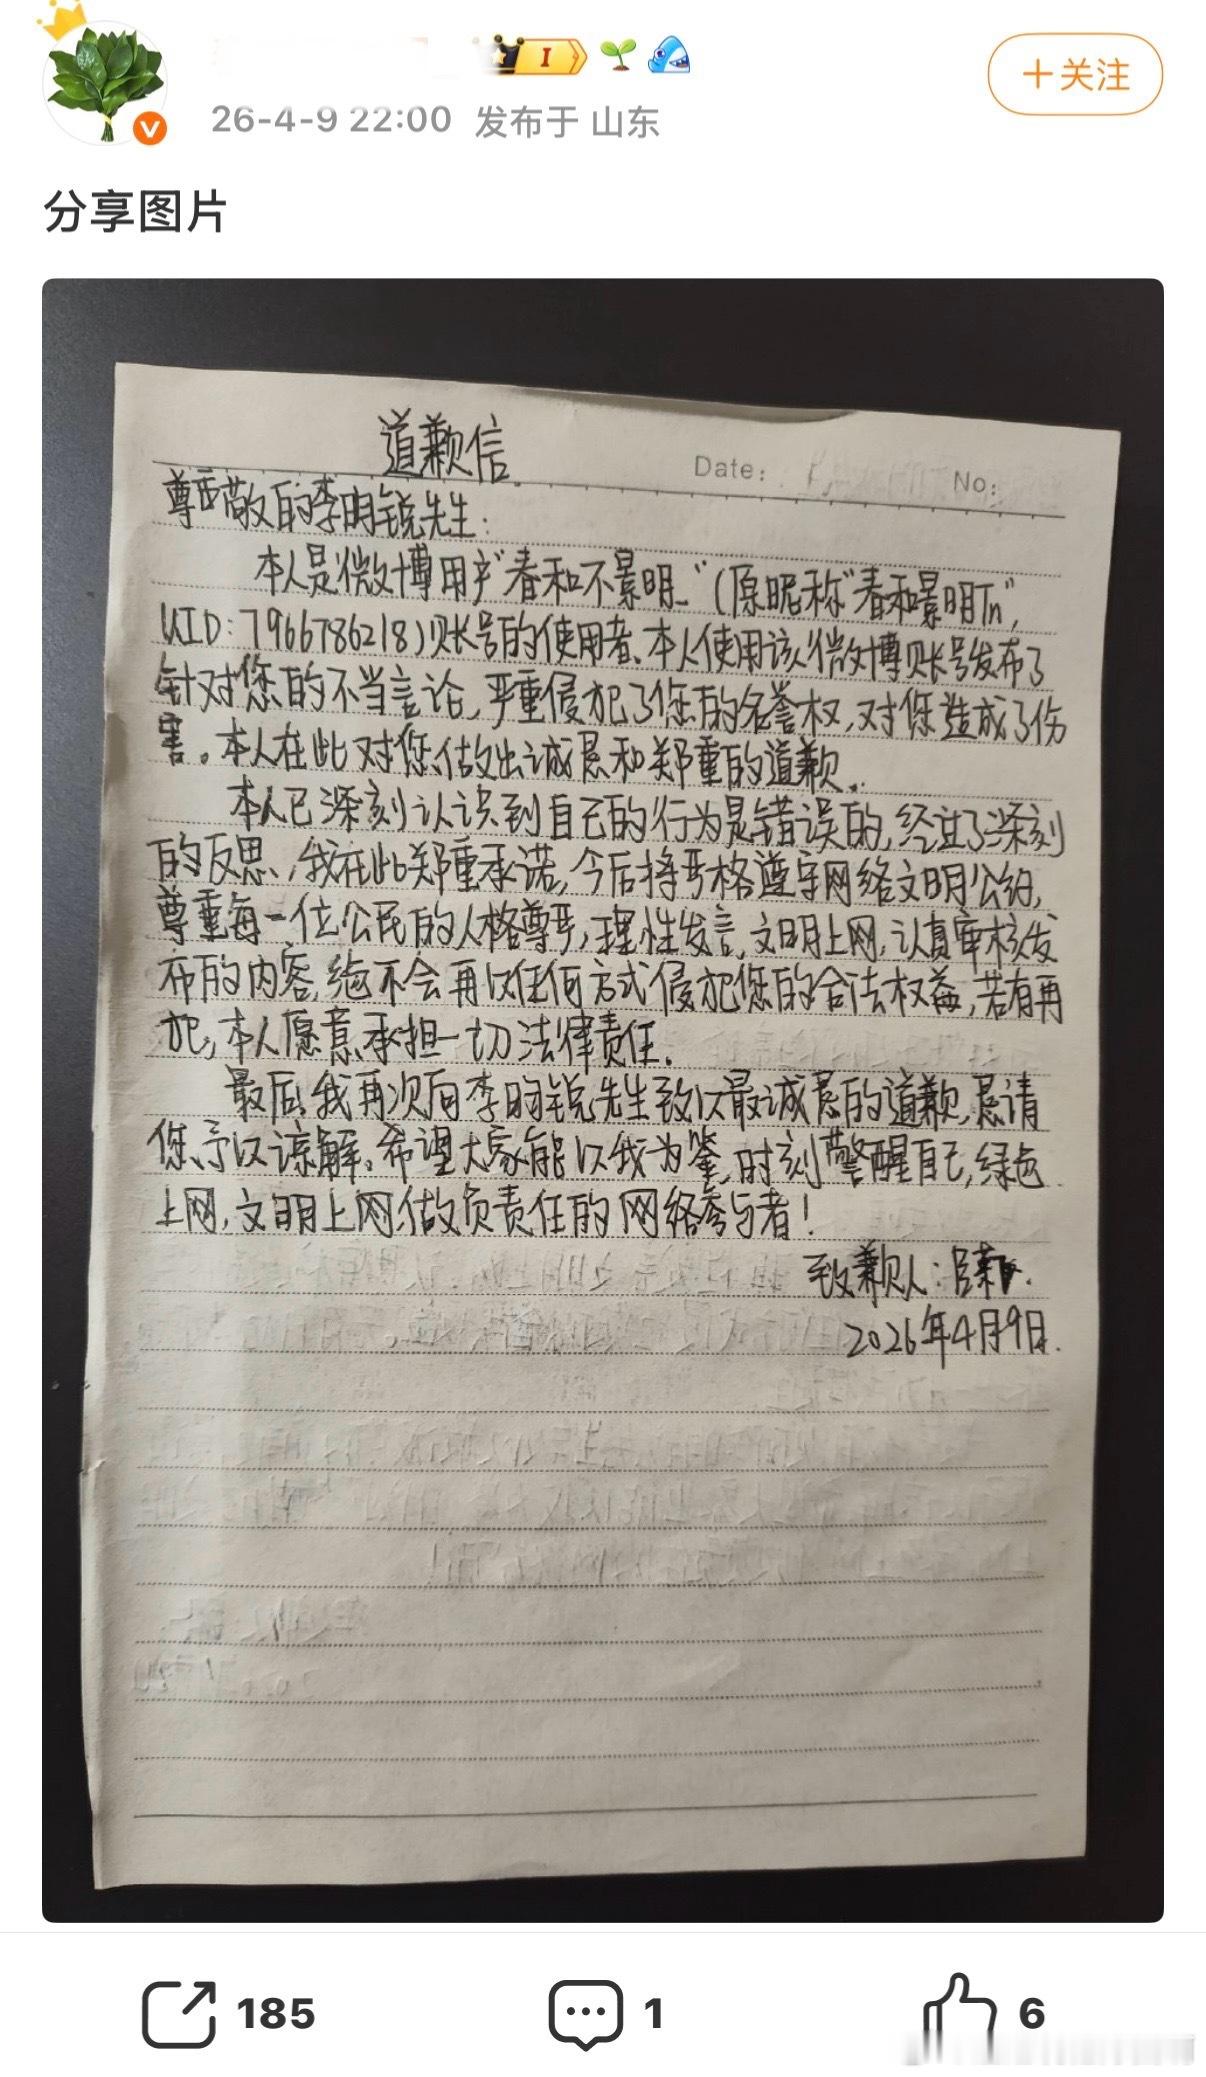 I
26-4-9 22:00 发布于 山东
+关注
分享图片
道歉信.
Date:
No:
尊敬的李昀锐先生:
本人是微博用户"春和不景明_"(原昵称"春和景明Tn",
UID:7966786218)账号的使用者、本人使用该微博账号发布了
针对您的不当言论,严重侵犯了您的名誉权,对您造成了伤
害。本人在此对您做出诚恳和郑重的道歉.
本人已深刻认识到自己的行为是错误的,经过了深刻
的反思,我在此郑重承诺,今后将严格遵守网络文明公约,
尊重每一位公民的人格尊严,理性发言,文明上网,认真审核发
布的内容,绝不会再以任何方式侵犯您的合法权益,若有再
犯,本人愿意承担一切法律责任.
最后,我再次向李昀锐先生致以最诚恳的道歉,恳请
您予以谅解。希望大家能以我为鉴,时刻警醒自己,绿色
上网,文明上网,做负责任的网络参与者!
致歉人:
2026年4月9日.
185
1
6